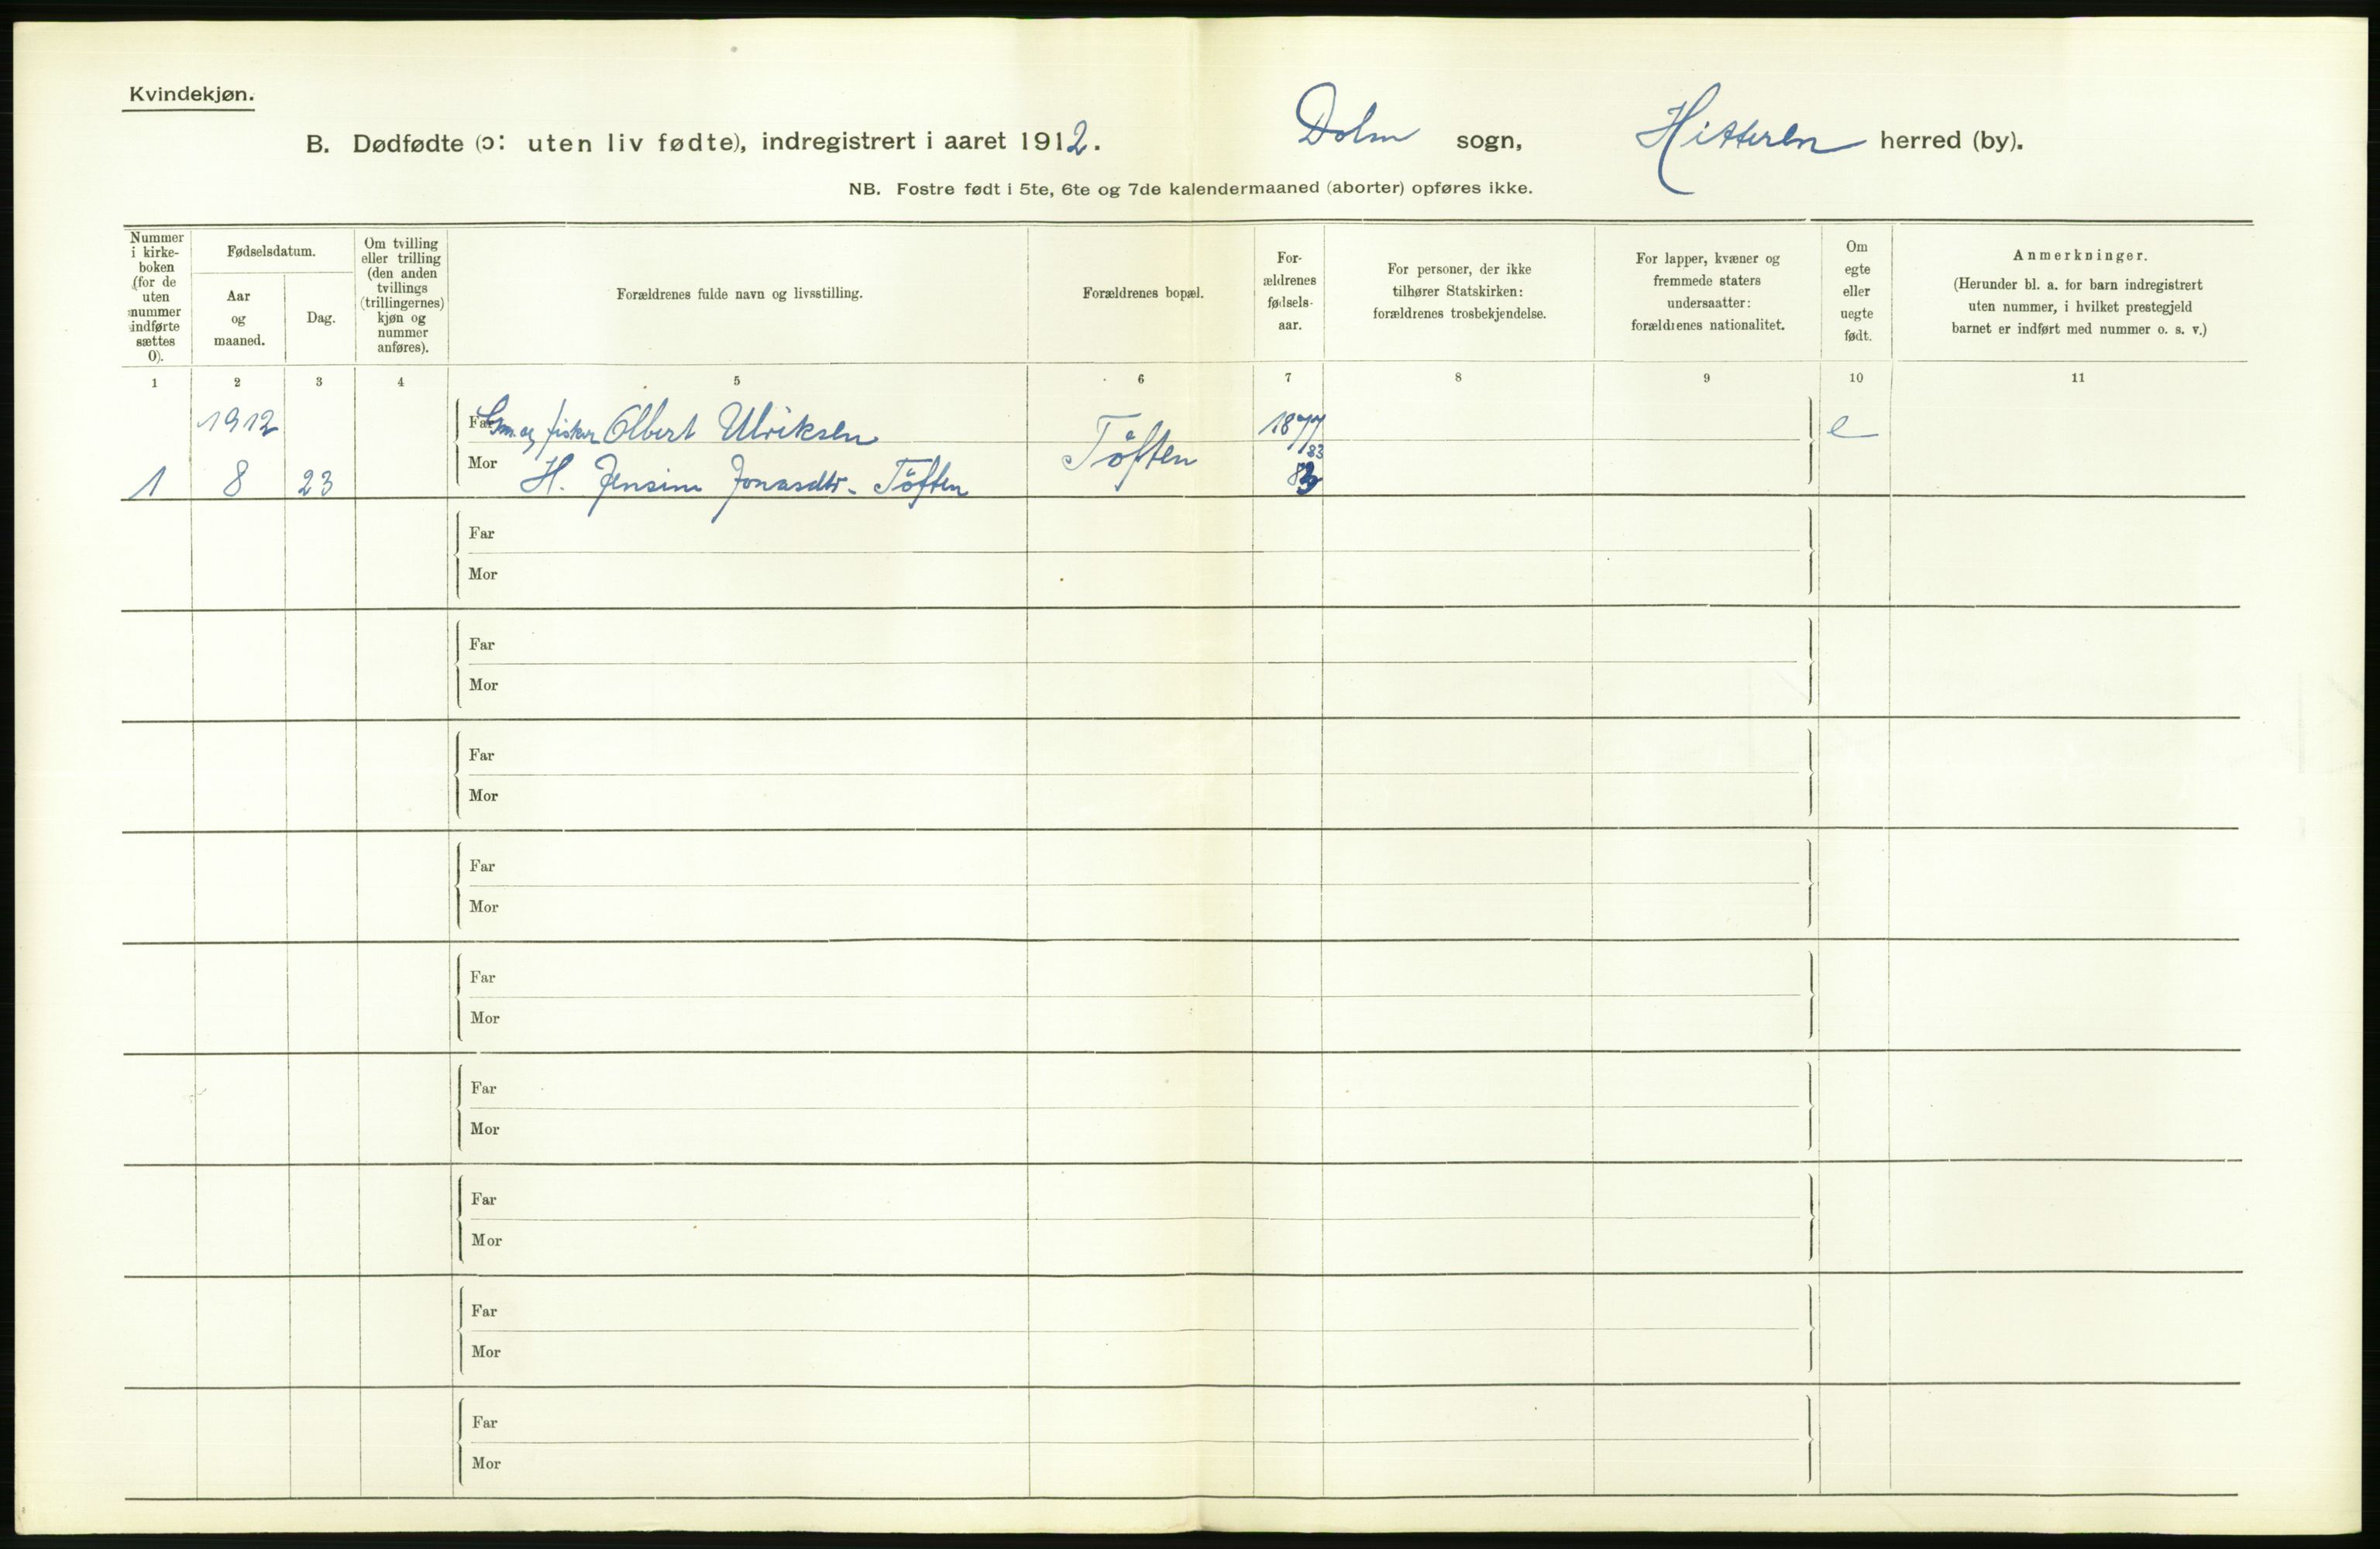 Kvindekjøn.
B. Dødfødte (ɔ: uten liv fødte), indregistrert i aaret 1912. Dolm sogn, Hitteren herred (by).
NB. Fostre født i 5te, 6te og 7de kalendermaaned (aborter) opføres ikke.
Nummer i kirke- boken (for de uten nummer indførte sættes 0).
Fødselsdatum.
Aar og maaned.
Dag.
Om tvilling eller trilling (den anden tvillings (trillingernes) kjøn og nummer anføres).
Forældrenes fulde navn og livsstilling.
Forældrenes bopæl.
For- ældrenes fødsels- aar.
For personer, der ikke tilhører Statskirken: forældrenes trosbekjendelse.
For lapper, kvæner og fremmede staters undersaatter: forældrenes nationalitet.
Om egte eller uegte født.
Anmerkninger.
(Herunder bl. a. for barn indregistrert uten nummer, i hvilket prestegjeld barnet er indført med nummer o. s. v.)
1 2 3 4 5 6 7 8 9 10 11
1912 Far Gm. og fisker Olbert Ulriksen Töften 1877 e
83
1 8 23 Mor H. Jensine Jonasdtr. Töften 83
Far
Mor
Far
Mor
Far
Mor
Far
Mor
Far
Mor
Far
Mor
Far
Mor
Far
Mor
Far
Mor